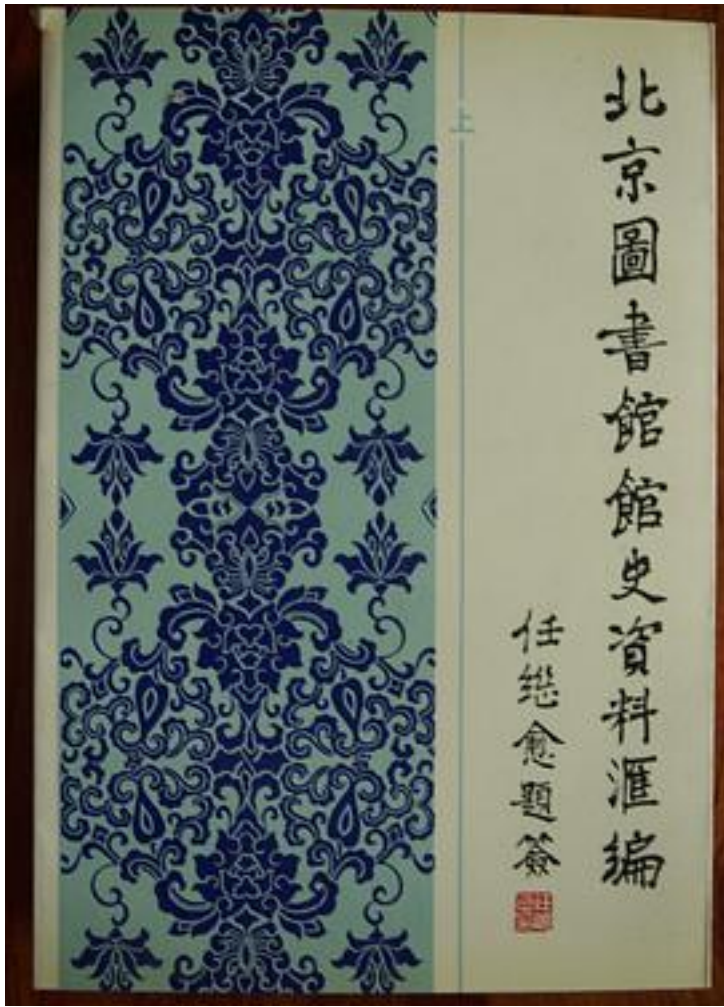 北京圖書館館史資料滙編
任継愈題簽
上